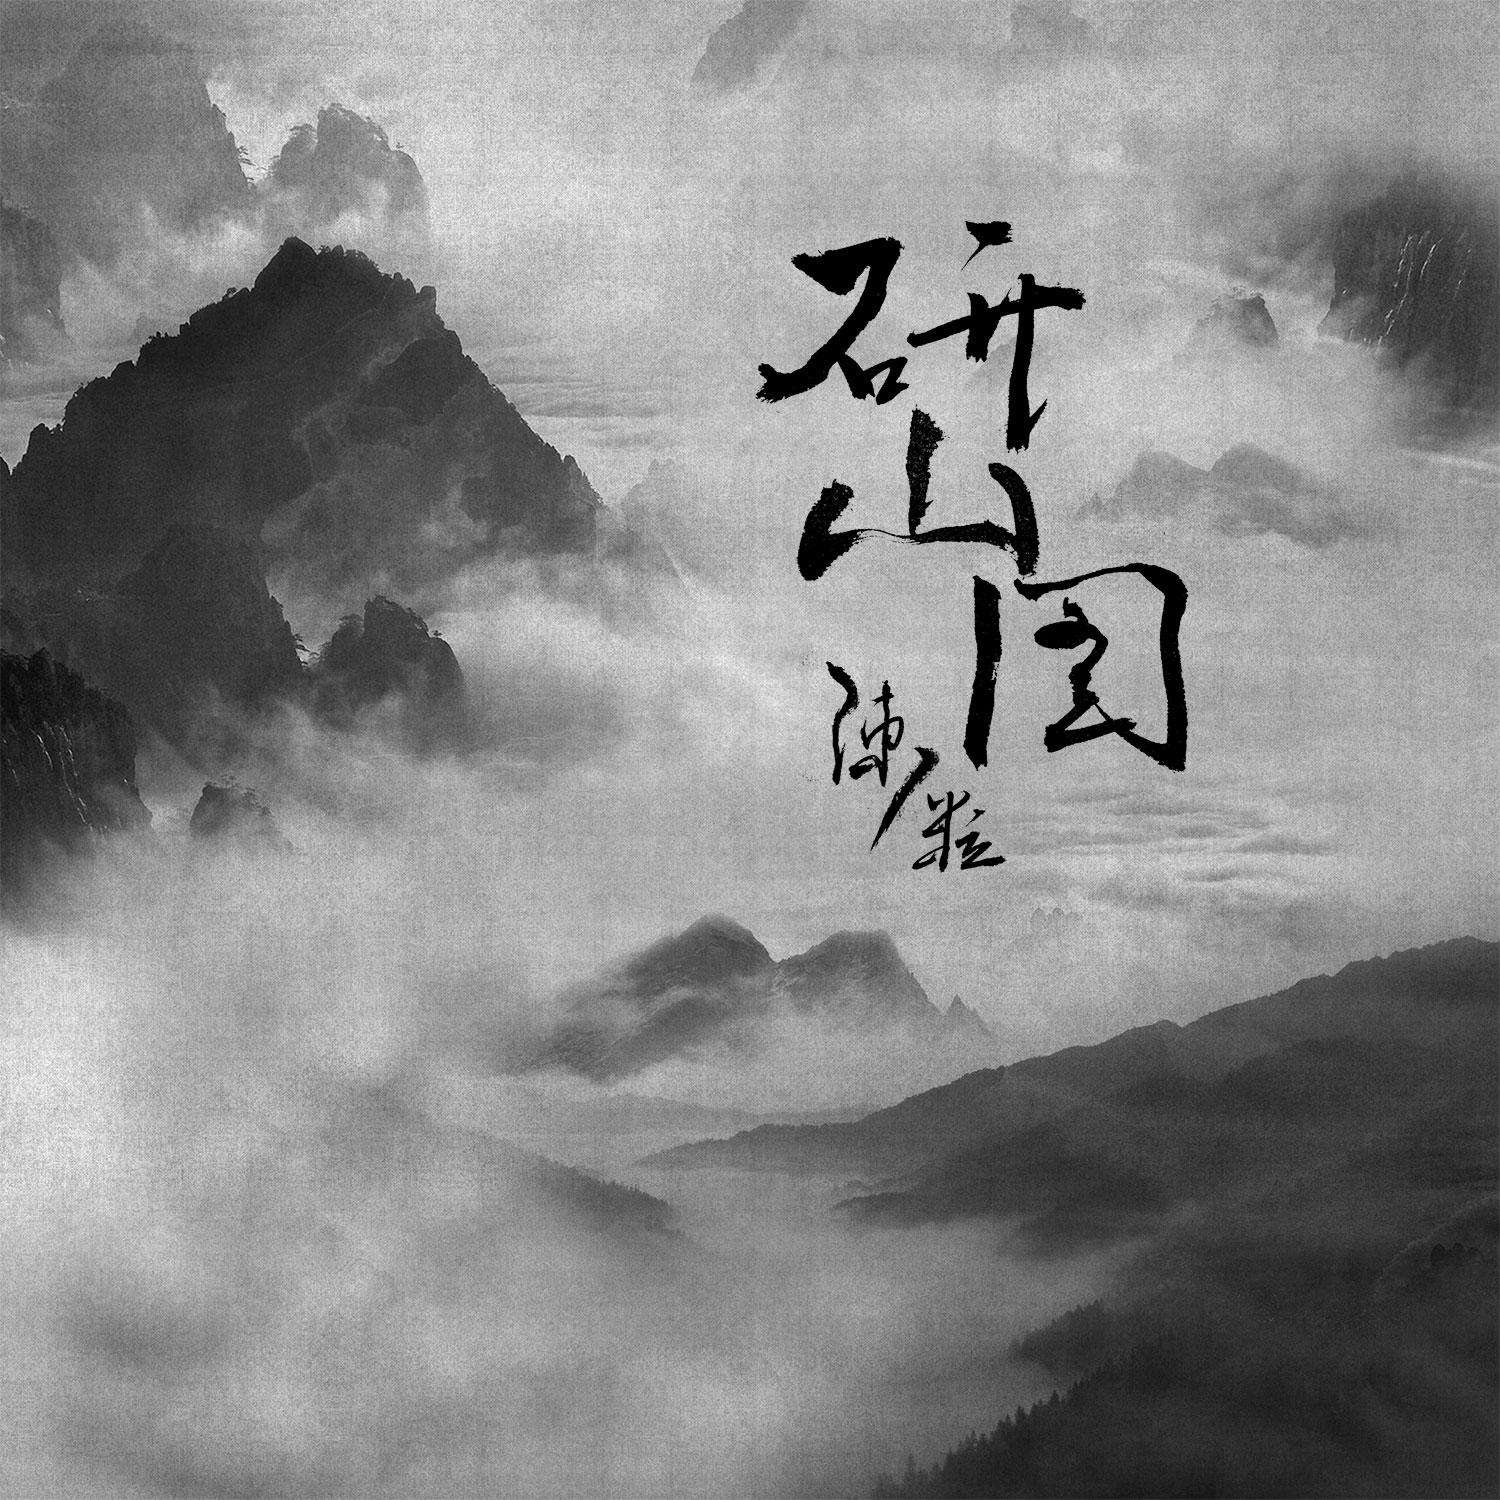 研山图
陳粒